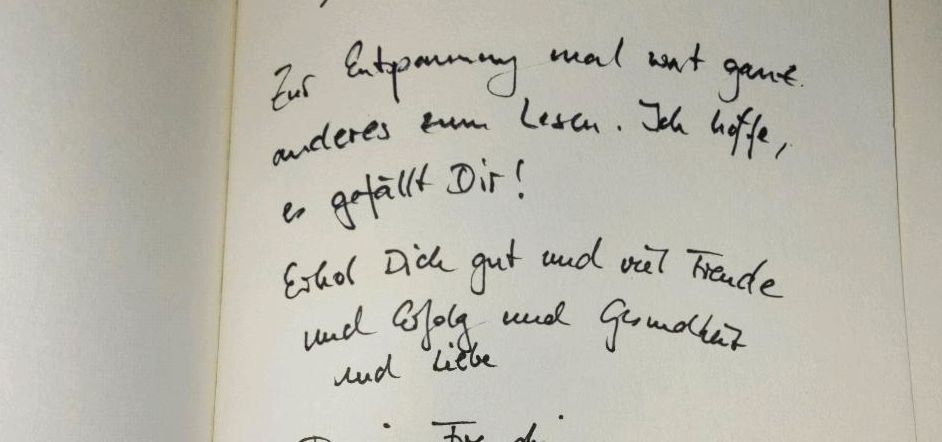 Zur Entspannung mal was ganz
anderes zum Lesen. Ich hoffe,
es gefällt Dir!
Erhol Dich gut und viel Freude
und Erfolg und Gesundheit
und Liebe